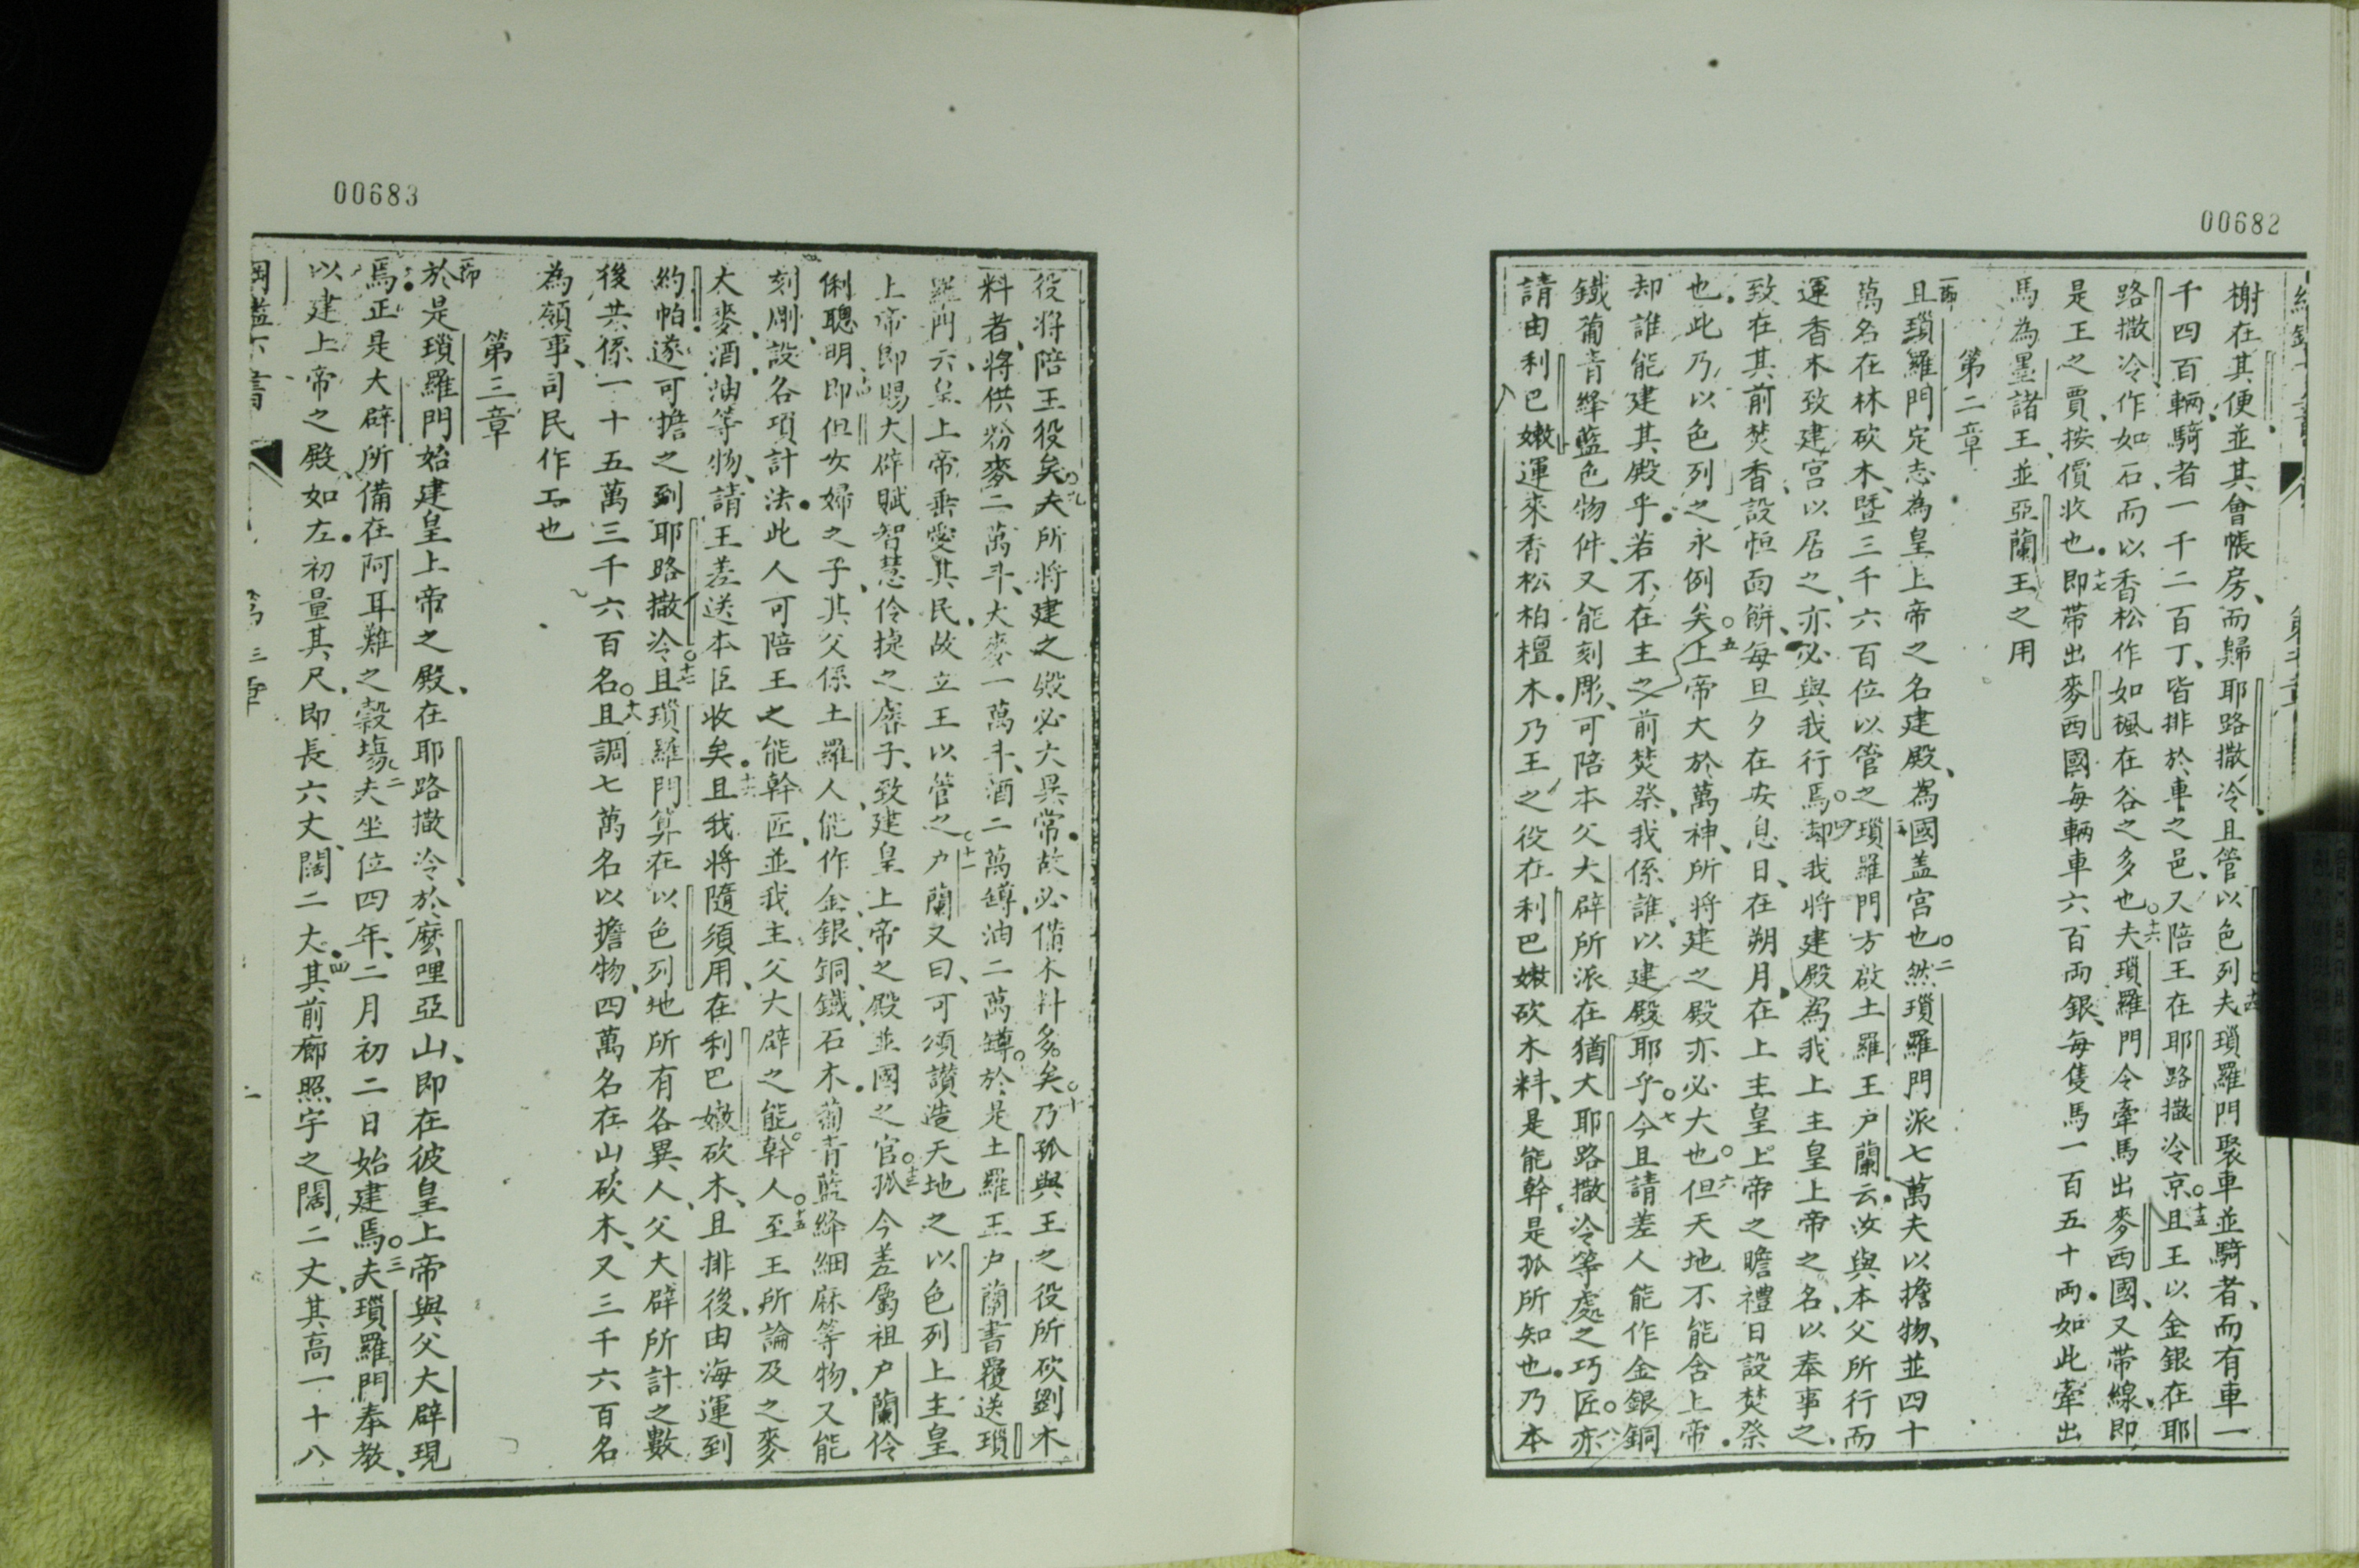 00682
榭在其便並其會帳房、而歸耶路撒冷、且管以色列夫瑣羅門聚車並騎者、而有車一
千四百輛、騎者一千二百丁、皆排於車之邑、又陪王在耶路撒冷京。十五且王以金銀在耶
路撒冷、作如石而以香松作如楓在谷之多也。十六夫瑣羅門令牽馬出麥西國、又帶線、即
是王之賈、按價收也。十七即帶出麥西國每輛車六百両銀、每隻馬一百五十両。如此牽出
馬為墨諸王、並亞蘭王之用
第二章
一節且瑣羅門定志為皇上帝之名建殿、為國蓋宮也。二然瑣羅門派七萬夫以擔物、並四十
萬名在林砍木、暨三千六百位以管之瑣羅門方啟土羅王户蘭云、汝與本父所行而
運香木致建宮以居之、亦必與我行焉。四却我將建殿為我上主皇上帝之名、以奉事之、
致在其前焚香、設恒面餅、每旦夕在安息日、在朔月、在上主皇上帝之瞻禮日設焚祭
也。此乃以色列之永例矣。五上帝大於萬神、所將建之殿亦必大也。六但天地不能含上帝。
却誰能建其殿乎。若不在主之前焚祭、我係誰、以建殿耶乎。七今且請差人能作金銀銅
鐵葡青絳藍色物件、又能刻彫、可陪本父大辟所派在猶大耶路撒冷等處之巧匠。八亦
請由利巴嫩運來香松柏檀木。乃王之役在利巴嫩砍木料、是能幹、是孤所知也。乃本
00683
役將陪王役矣。九夫所將建之殿必大異常。故必備木料多矣。十乃孤與王之役所砍劉木
料者、將供粉麥二萬斗、大麥一萬斗、酒二萬罇、油二萬罇。於是土羅王户蘭書覆送瑣
羅門云、皇上帝垂愛其民、故立王以管之。十一户蘭又曰、可頌讚造天地之以色列上主皇
上帝、即賜大辟賦智慧伶捷之孱子、致建皇上帝之殿、並國之官。十三孤今差屬祖户蘭伶
俐聰明、即但女婦之子、其父係土羅人、能作金、銀、銅、鐵、石木葡青藍絳細麻等物、又能
刻剛、設各項計法。此人可陪王之能幹匠、並我主父大辟之能幹人。十五至王所論及之麥
大麥、酒油等物、請王差送本臣收矣。十六且我將隨須用、在利巴嫩砍木、且排後、由海運到
約帕。遂可擔之到耶路撒冷。十七且瑣羅門算在以色列地所有各異人、父大辟所計之數
後共係一十五萬三千六百名。十八且調七萬名以擔物、四萬名在山砍木、又三千六百名
為領事、司民作工也
第三章
一節於是瑣羅門始建皇上帝之殿、在耶路撒冷、於麽哩亞山、即在彼皇上帝與父大辟現
焉。正是大辟所備在阿耳難之穀塲。二夫坐位四年、二月初二日始建焉。三夫瑣羅門奉教、
以建上帝之殿、如左。初量其尺、即長六丈、闊二大。四其前廊照宇之闊、二丈、其高一十八